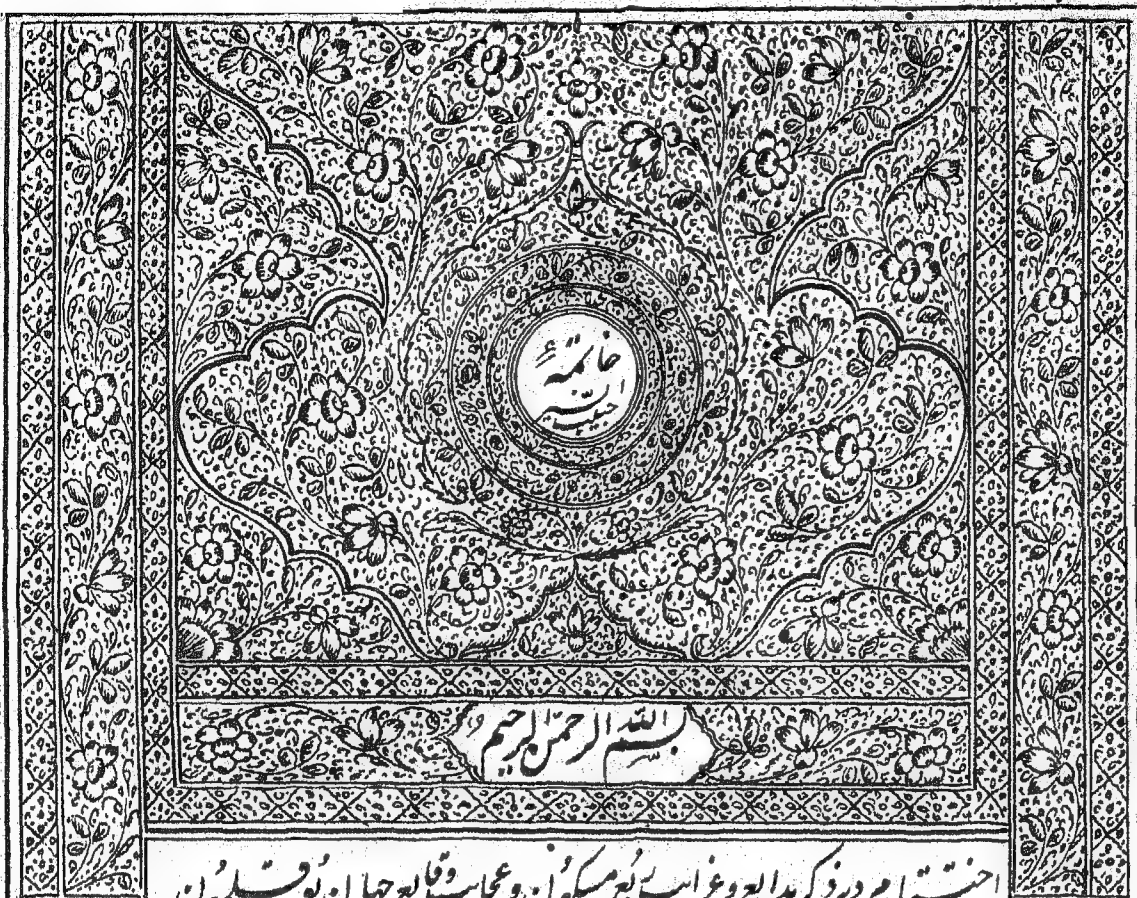 خاتمهٔ
الحبیب
بسم الله الرحمن الرحیم
اختتام در ذکر بدایع و غرایب ربع مسکون و عجایب وقایع جهان بوقلمون